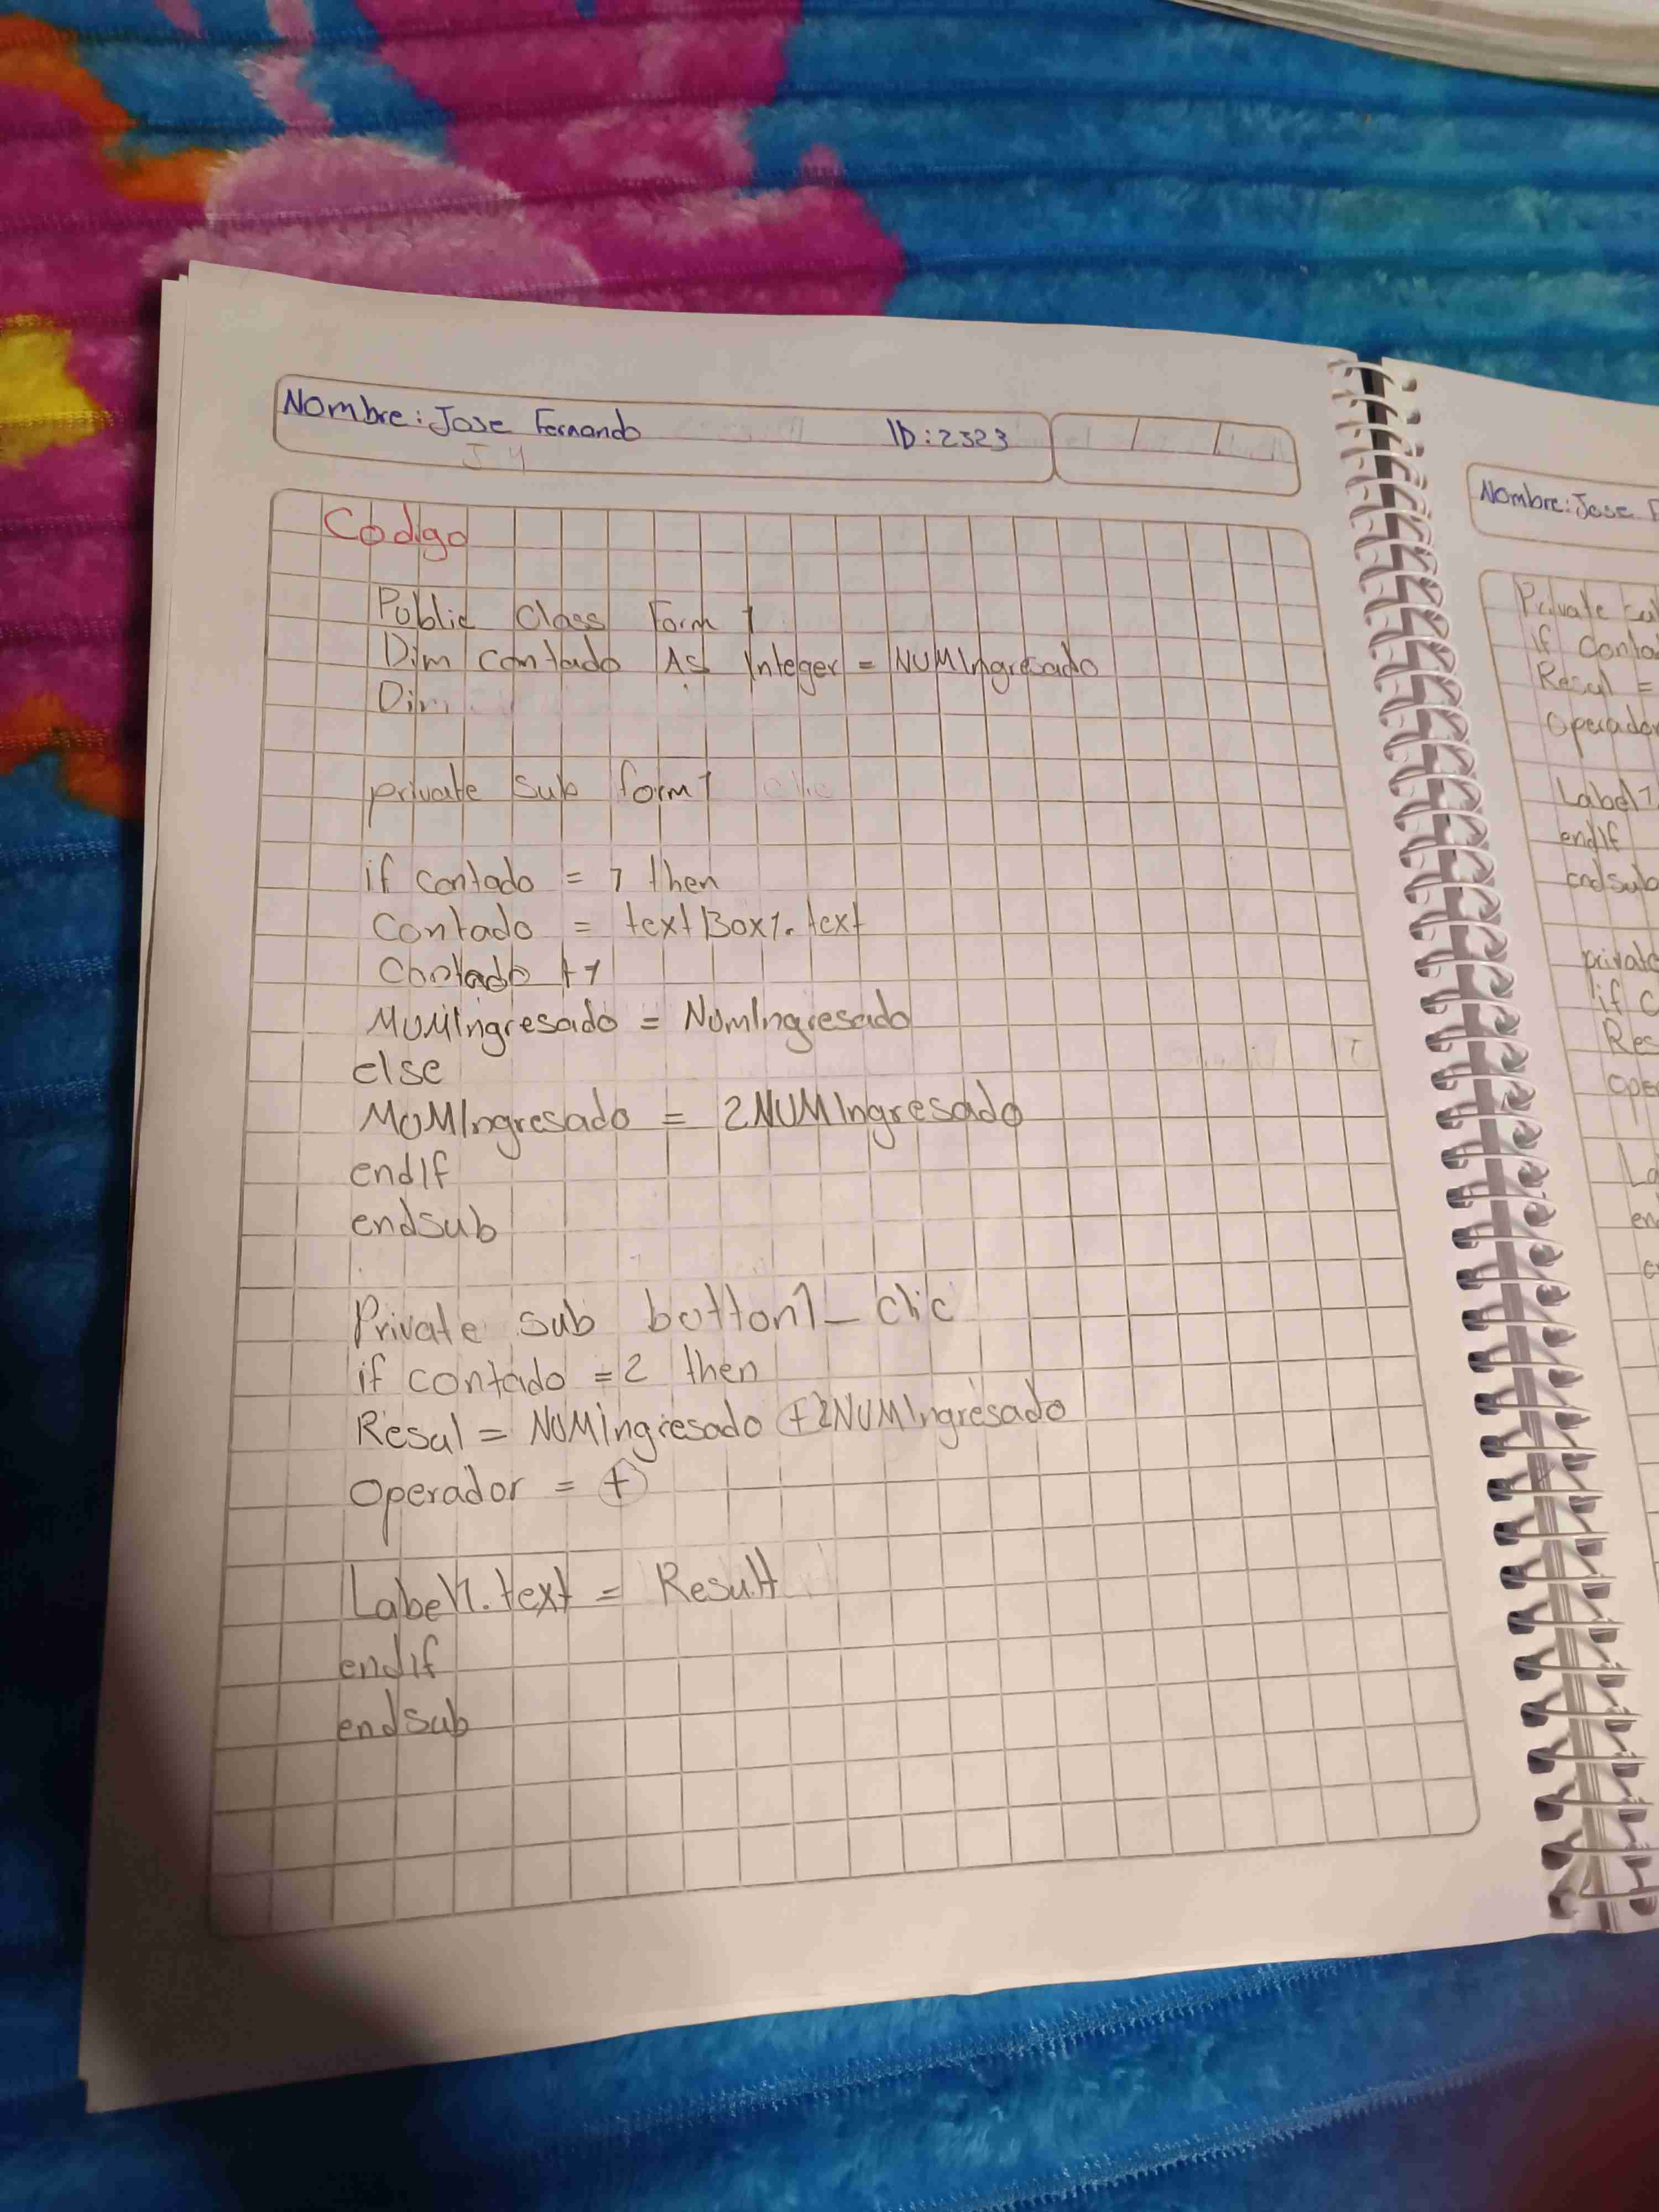 Nombre: Jose Fernando ID:2323
Codigo
Public Class Form 1
Dim contado As Integer = NUMIngresado
Dim
private sub form1 clic
if contado = 1 then
Contado = textBox1.text
Contado +1
MUMIngresado = NumIngresado
else
MUMIngresado = 2NUMIngresado
endIf
endsub
Private sub botton1_clic
if contado =2 then
Resul = NUMIngresado +2NUMIngresado
Operador = +
Label1.text = Result
endIf
endsub
Nombre: Jose
Private
if
Resul =
Operador
Label1.
endIf
endsub
private
if